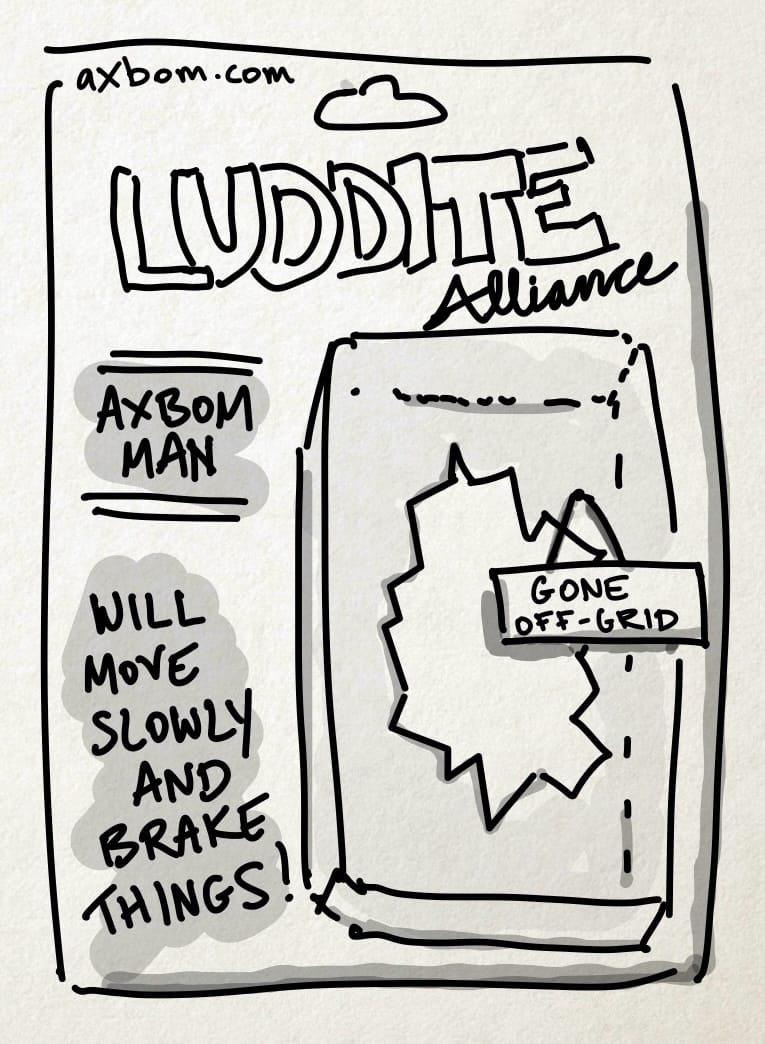 axbom.com
LUDDITE
Alliance
AXBOM
MAN
WILL
MOVE
SLOWLY
AND
BRAKE
THINGS!
GONE
OFF-GRID